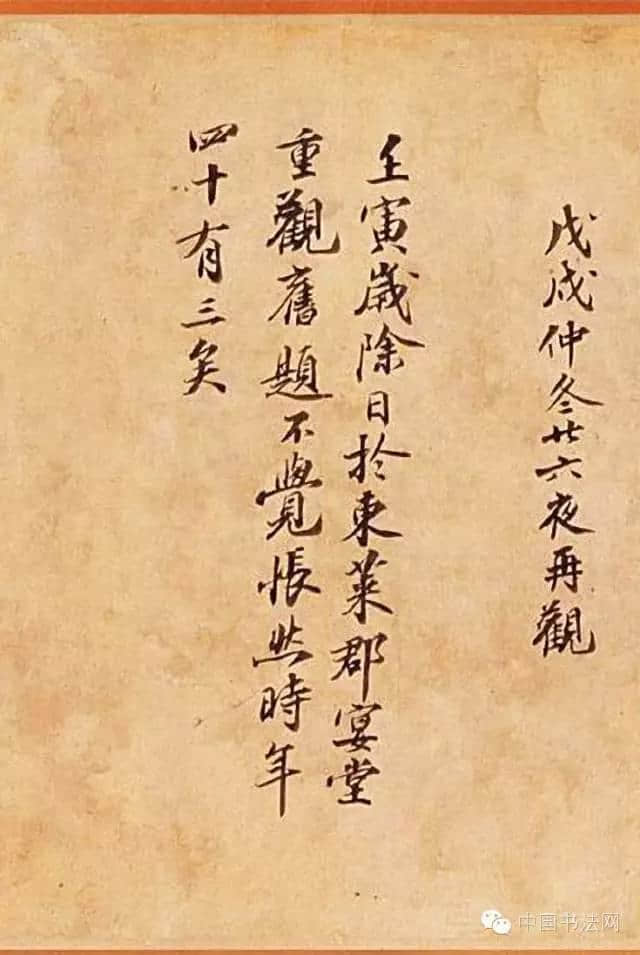 戊戌仲冬廿六夜再觀
壬寅歲除日於東萊郡宴堂
重觀舊題不覺悵然時年
四十有三矣
中国书法网